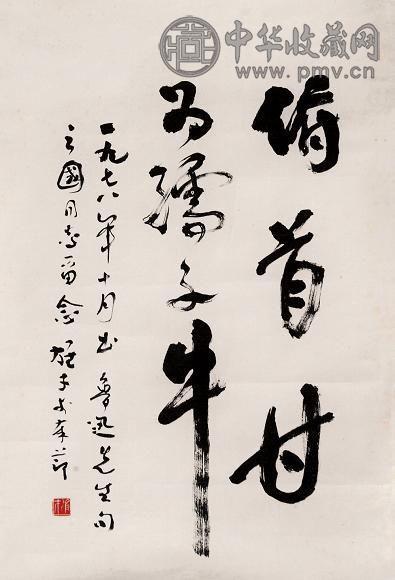 中华收藏网
www.pmv.cn
俯首甘
为孺子牛
一九七八年十月书 鲁迅先生句
之國同志留念 雄才於奉节